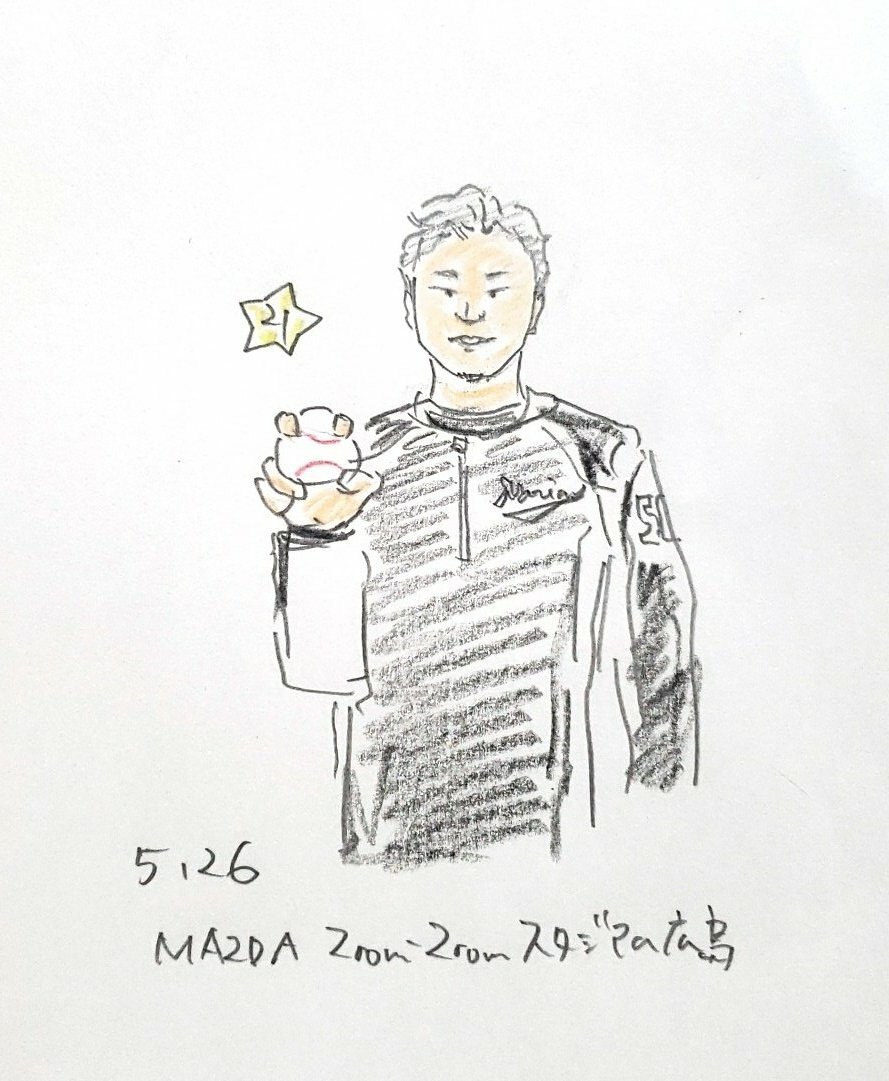 21
51
5.26
MAZDA Zoom-Zoom スタジアム広島